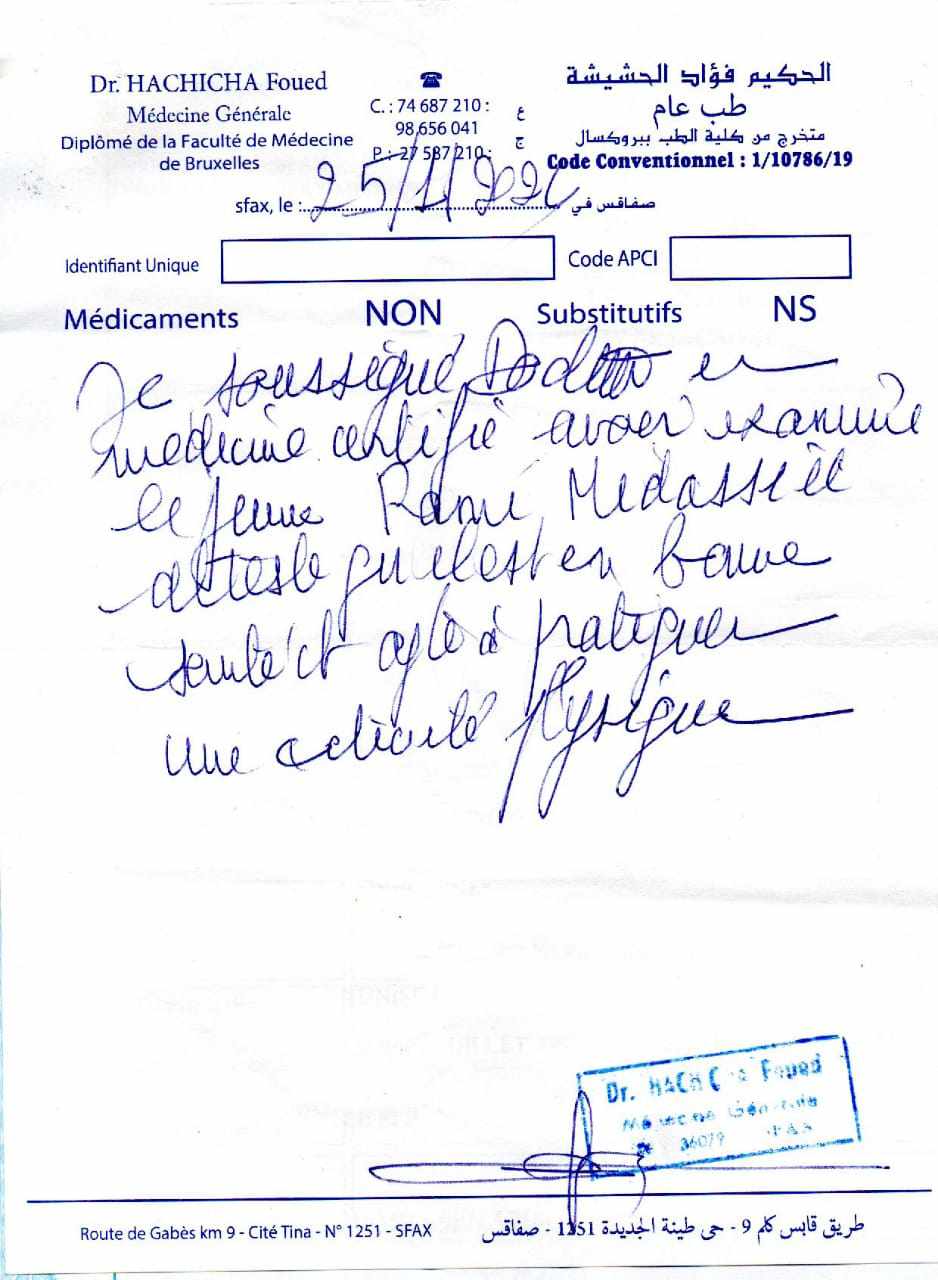 Dr. HACHICHA Foued
Médecine Générale
Diplômé de la Faculté de Médecine
de Bruxelles
☎
C. : 74 687 210 : ع
98 656 041
P. : 27 587 210 : ج
الحكيم فؤاد الحشيشة
طب عام
متخرج من كلية الطب ببروكسال
Code Conventionnel : 1/10786/19
sfax, le : 25/1/202 صفاقس في
Identifiant Unique
Code APCI
Médicaments NON Substitutifs NS
Je soussigné en
medecine certifie avoir examiné
le jeune Rami
atteste qu'il est en bonne
santé et apte à pratiquer
une activité physique
Dr. HACHICHA Foued
Médecine Générale
36079 SFAX
Route de Gabès km 9 - Cité Tina - N° 1251 - SFAX
طريق قابس كلم 9 - حي طينة الجديدة 1251 - صفاقس